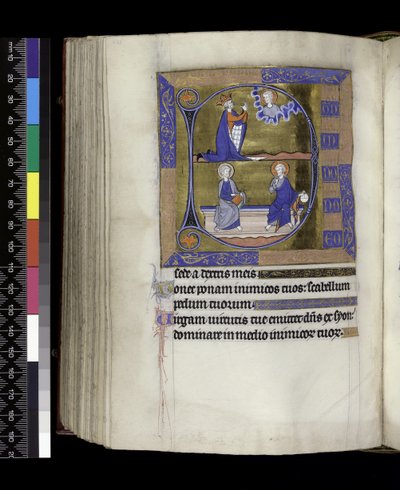 sede a dextris meis
Donec ponam inimicos tuos: scabellum
pedum tuorum.
Uirgam uirtutis tue emittet dñs ex syon:
dominare in medio inimicor tuor.